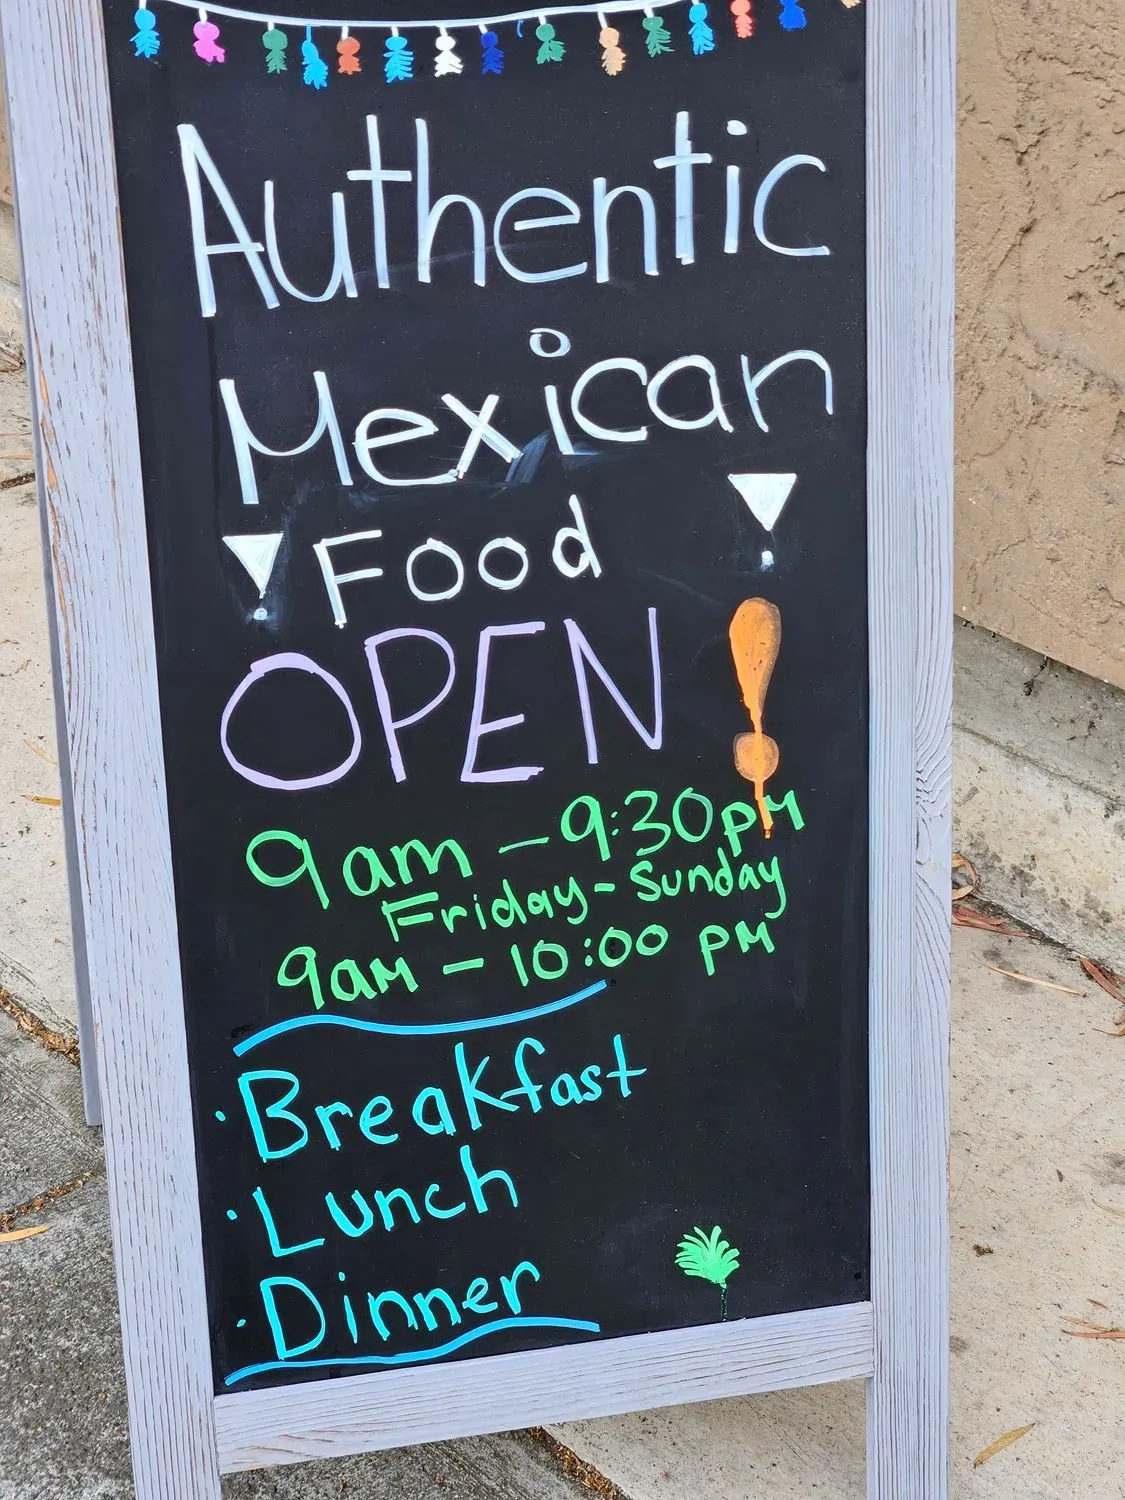 Authentic
Mexican
Food
OPEN!
9am - 9:30pM
Friday - Sunday
9aM - 10:00 PM
· Breakfast
· Lunch
· Dinner